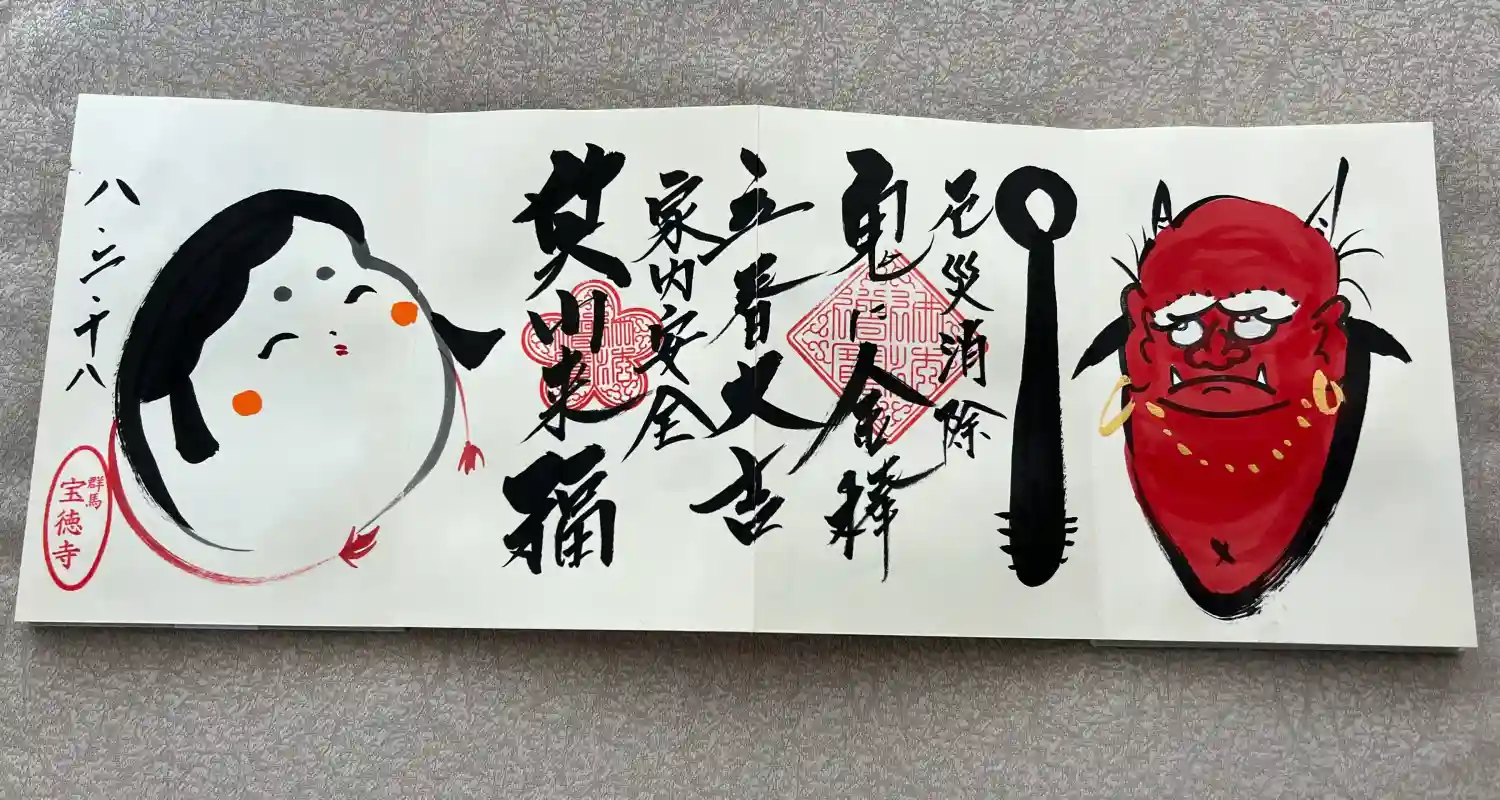 厄災消除
鬼に金棒
立春大吉
家内安全
笑門来福
八.二.十八
群馬
宝徳寺